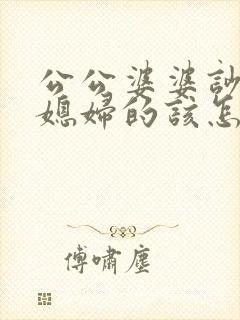 公公婆婆
媳婦的該怎
傅嘯塵